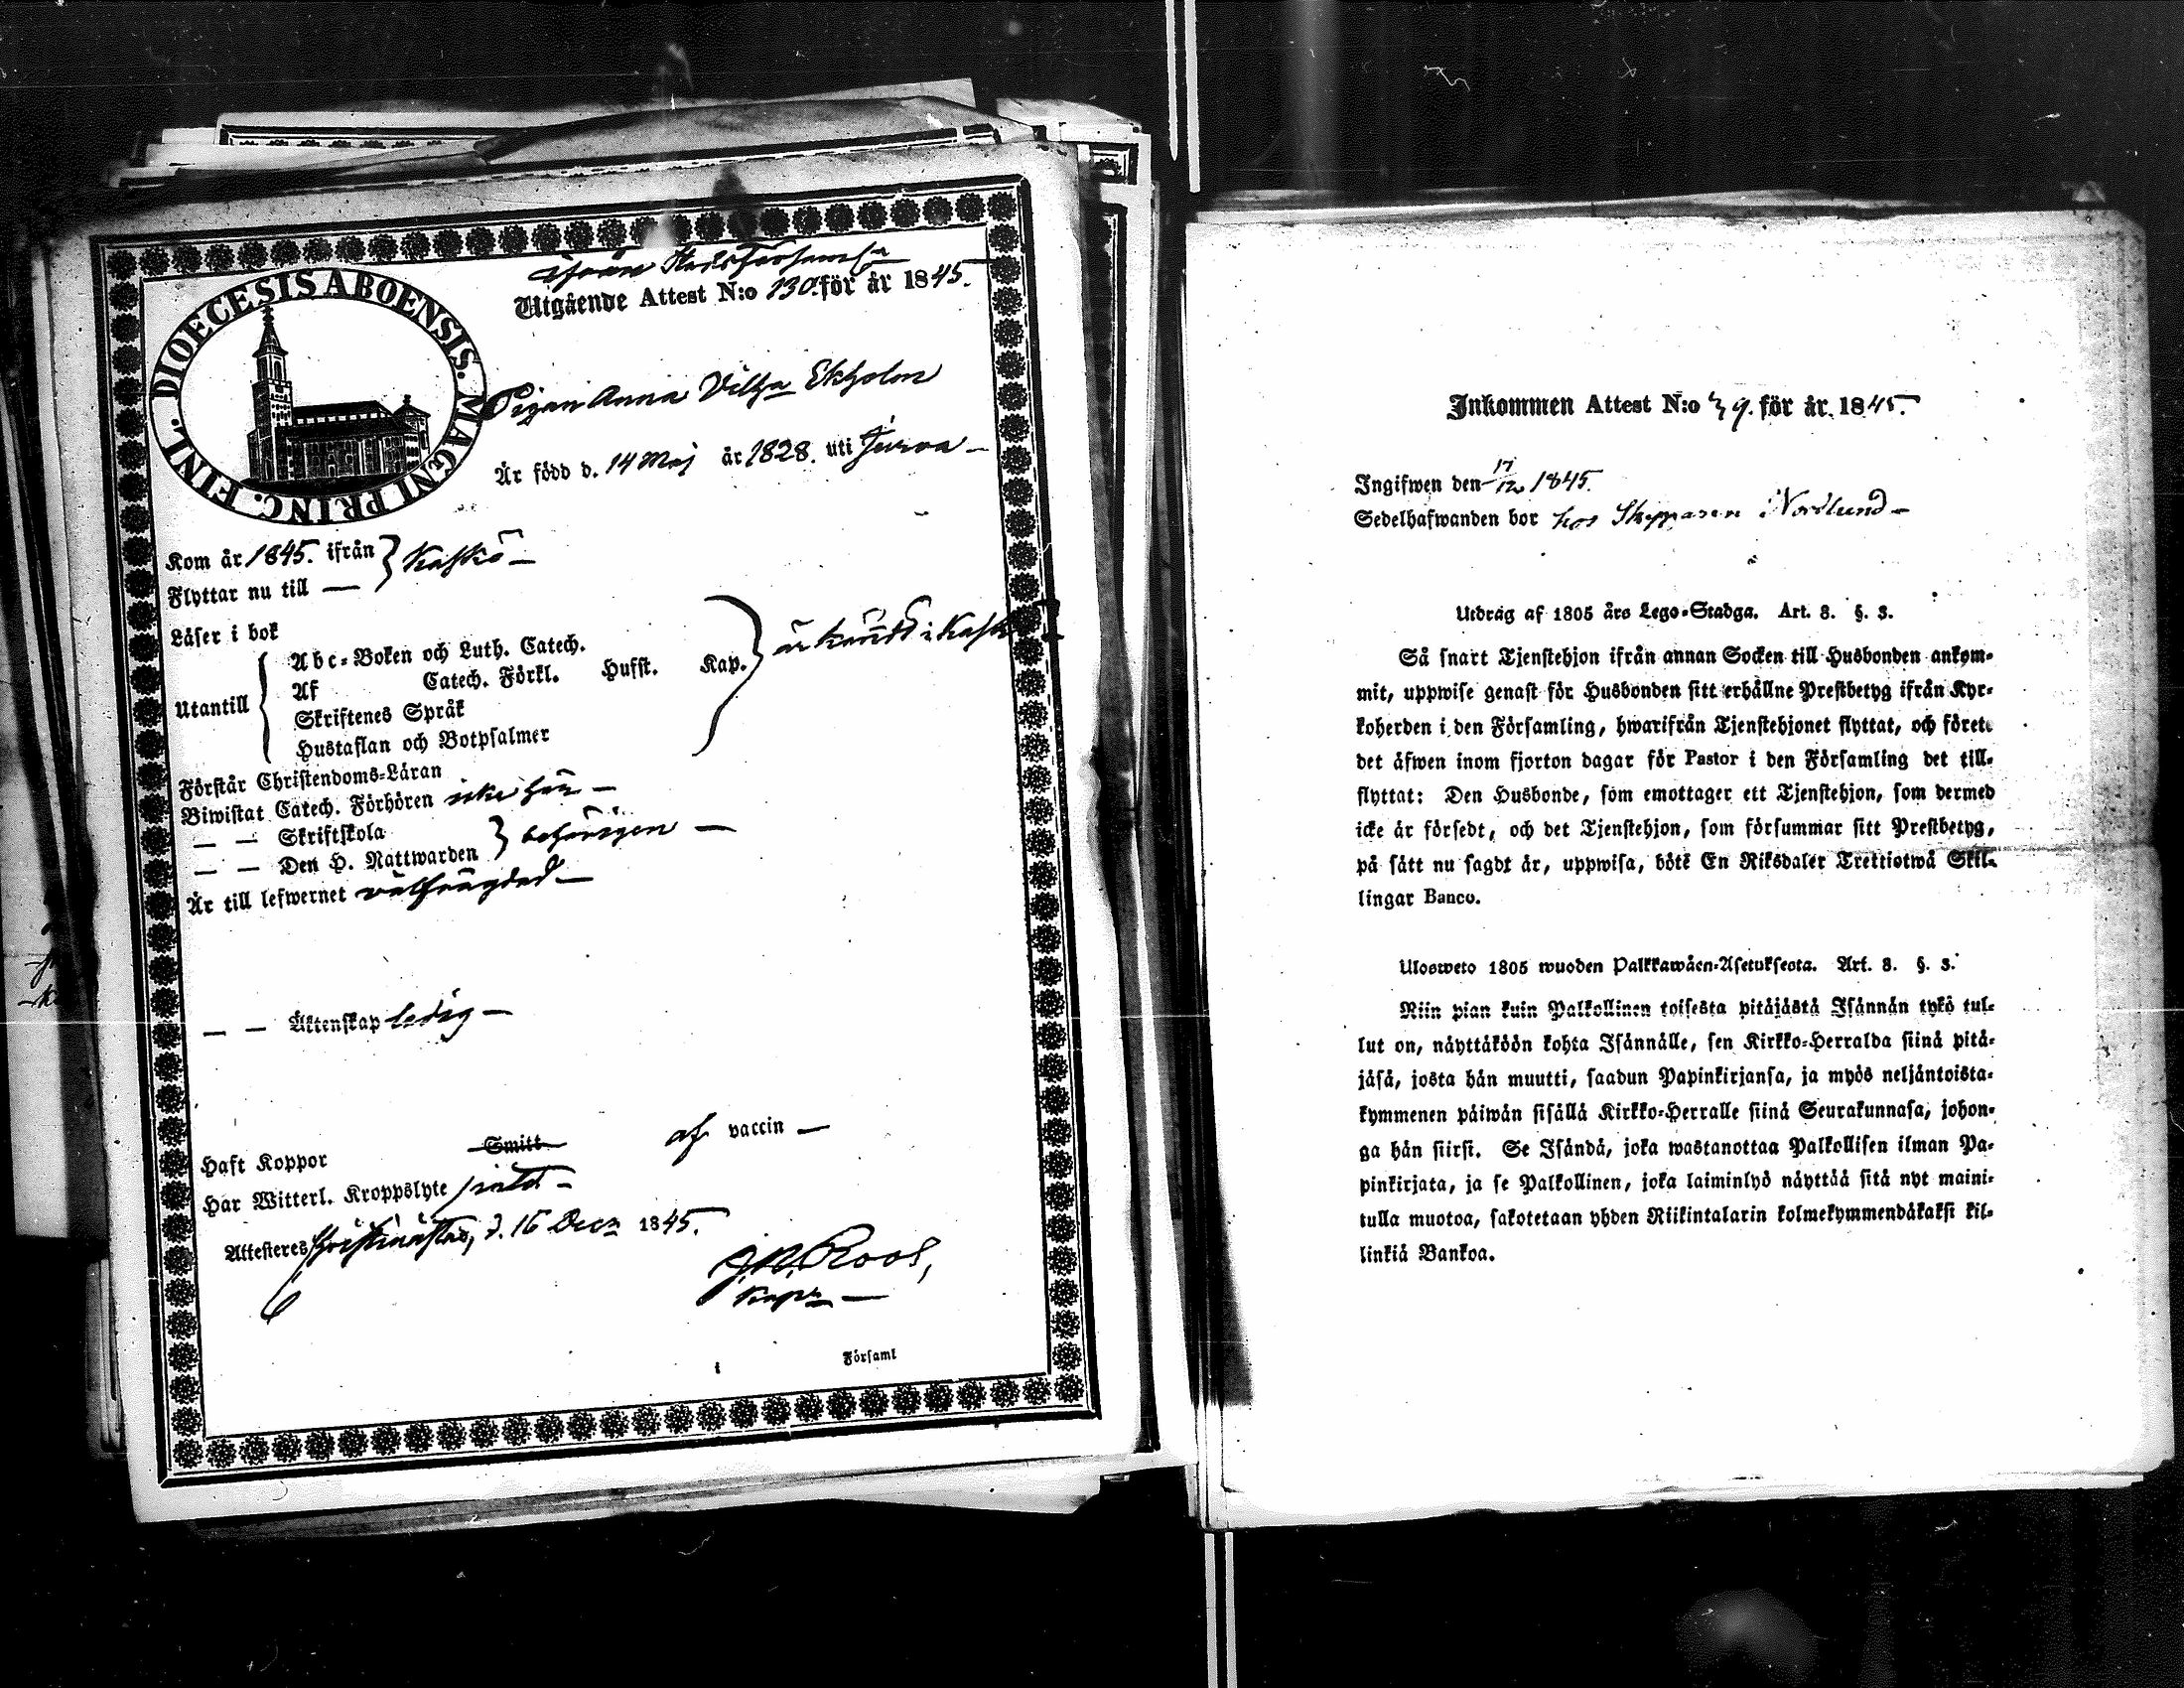 DIOECESIS ABOENSIS. MAGNI PRINC. FINL.
ifrån Stadsförsaml:n
Utgående Attest N:o 130. för år 1845.
Pigan Anna Vilh:a Ekholm
Är född d. 14 Maj år 1828. uti Jurva —
Kom år 1845. ifrån } Kaskö —
Flyttar nu till —
Läser i bok
Utantill { Abc-Boken och Luth. Catech.
Af Catech. Förkl. Hufst. Kap. } är känd i Kaskö
Skriftenes Språk
Hustaflan och Botpsalmer
Förstår Christendoms-Läran
Biwistat Catech. Förhören icke här —
— — Skriftskola } behörigen —
— — Den H. Nattwarden
Är till lefwernet välfrägdad —
— — Äktenskap ledig —
Haft Koppor Smitt af vaccin —
Har Witterl. Kroppslyte
Attesteres Christinæstad, d. 16 Dec:r 1845.
Roos,
Kap:n —
i Församl
Inkommen Attest N:o 9. för år 1845.
Ingifwen den 17/12 1845.
Sedelhafwanden bor hos Skepparen Nordlund —
Utdrag af 1805 års Lego-Stadga. Art. 8. §. 3.
Så snart Tjenstehjon ifrån annan Socken till Husbonden ankom-
mit, uppwise genast för Husbonden sitt erhållne Prestbetyg ifrån Kyr-
koherden i den Församling, hwarifrån Tjenstehjonet flyttat, och förete
det äfwen inom fjorton dagar för Pastor i den Församling det till-
flyttat: Den Husbonde, som emottager ett Tjenstehjon, som dermed
icke är försedt, och det Tjenstehjon, som försummar sitt Prestbetyg,
på sätt nu sagdt är, uppwisa, böte En Riksdaler Trettiotwå Skil-
lingar Banco.
Ulosweto 1805 wuoden Palkkawäen-Asetuksesta. Art. 8. §. 3.
Niin pian kuin Palkollinen toisesta pitäjästä Isännän tykö tul-
lut on, näyttäköön kohta Isännälle, sen Kirkko-Herralda siinä pitä-
jäsä, josta hän muutti, saadun Papinkirjansa, ja myös neljäntoista-
kymmenen päiwän sisällä Kirkko-Herralle siinä Seurakunnasa, johon-
ga hän siirsi. Se Isändä, joka wastanottaa Palkollisen ilman Pa-
pinkirjata, ja se Palkollinen, joka laiminlyö näyttää sitä nyt maini-
tulla muotoa, sakotetaan yhden Riikintalarin kolmekymmendäkaksi kil-
linkiä Bankoa.